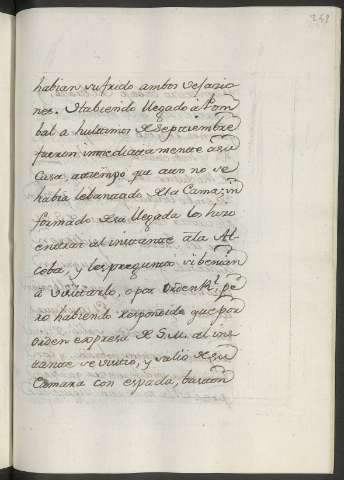 habian sufrido ambos desazio
nes. Habiendo llegado à Pom
bal a hultimos de Septiembre
fueron inmediatamente à su
Casa, àtiempo que aun no se
habia lebantado de la Cama: in
formado de su llegada los hizo
entrar al instante àla Al
coba, y les preguntò si benian
à visitarlo, o por orden Rl. pe
ro habiendo respondido que por
orden expresa de S.M. al ins
tante se vistiò, y saliò de su
Camara con espada, baston